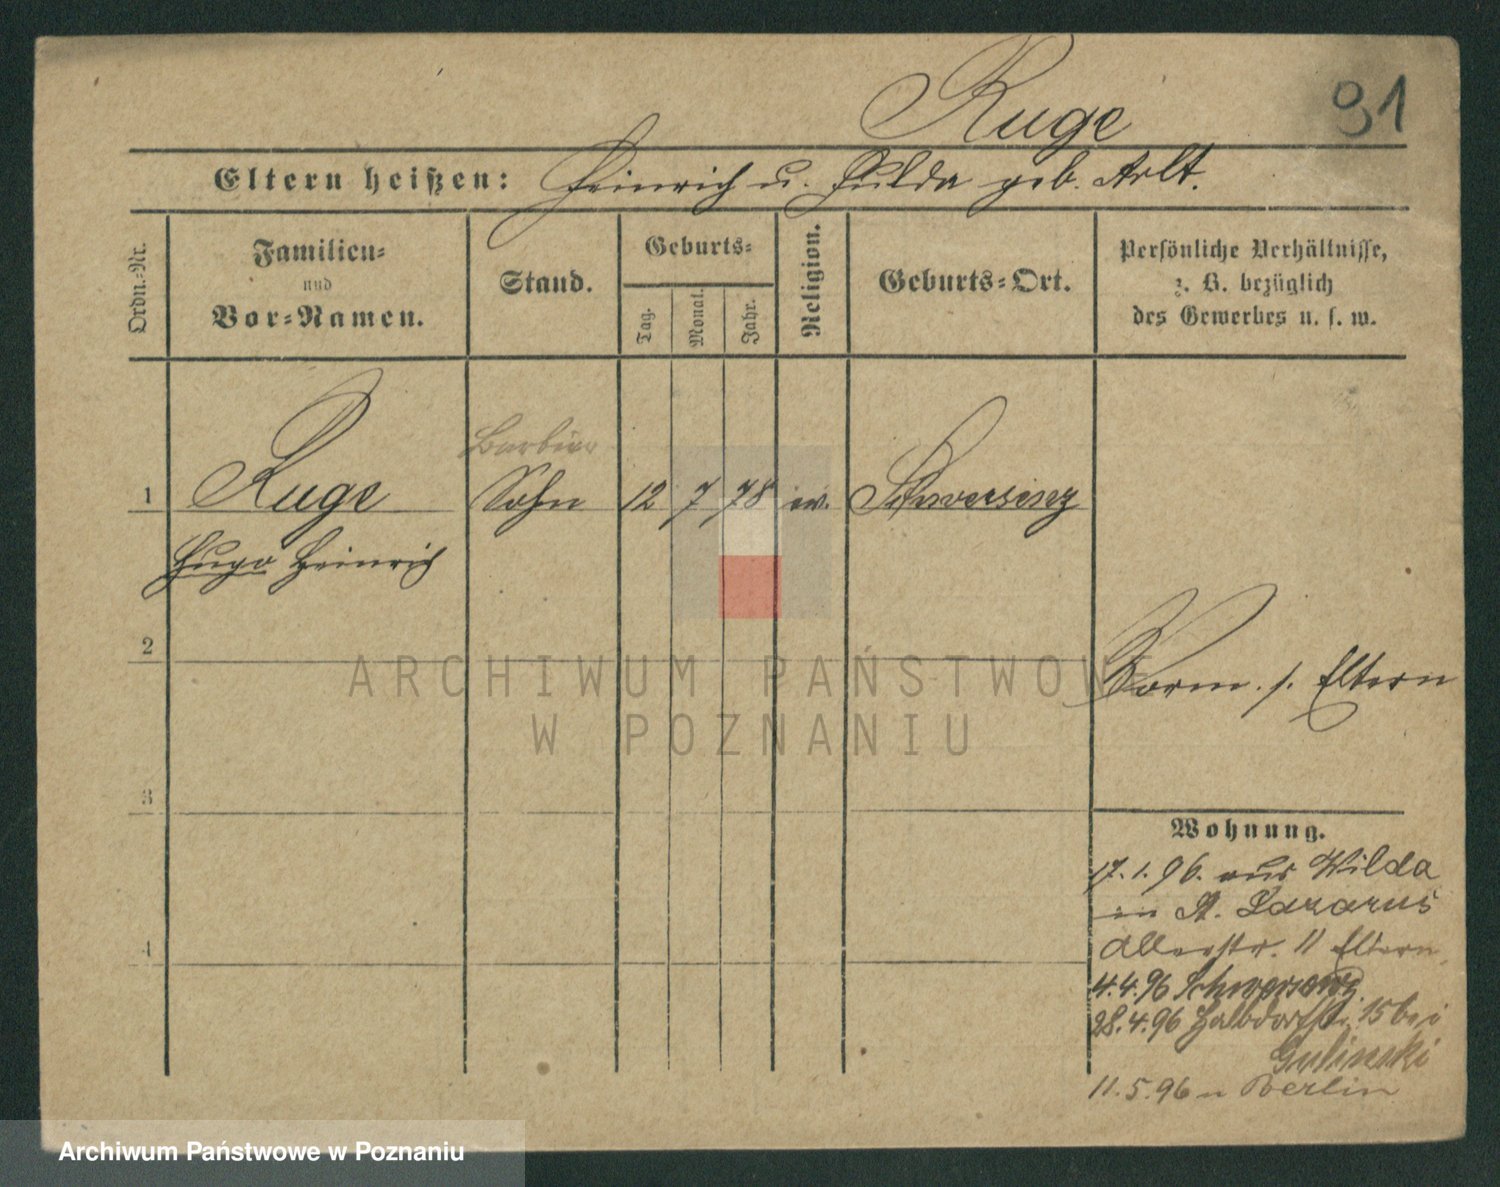 Ruge
91
Eltern heißen: Heinrich u. Hulda geb. Arlt.
Ordn.-Nr.
Familien-
und
Vor-Namen.
Stand.
Geburts-
Tag.
Monat.
Jahr.
Religion.
Geburts-Ort.
Persönliche Verhältnisse,
z. B. bezüglich
des Gewerbes u. s. w.
Barbier
1 Ruge Sohn 12 7 78 ev. Schwersenz
Hugo Heinrich
2
Vorm. s. Eltern
3
Wohnung.
17.1.96. aus Wilda
in St. Lazarus
11 Eltern
4
4.4.96 Schwersenz
28.4.96 Halbdorfstr. 15 bei
Gulinski
11.5.96 n Berlin
ARCHIWUM PAŃSTWOWE
W POZNANIU
Archiwum Państwowe w Poznaniu